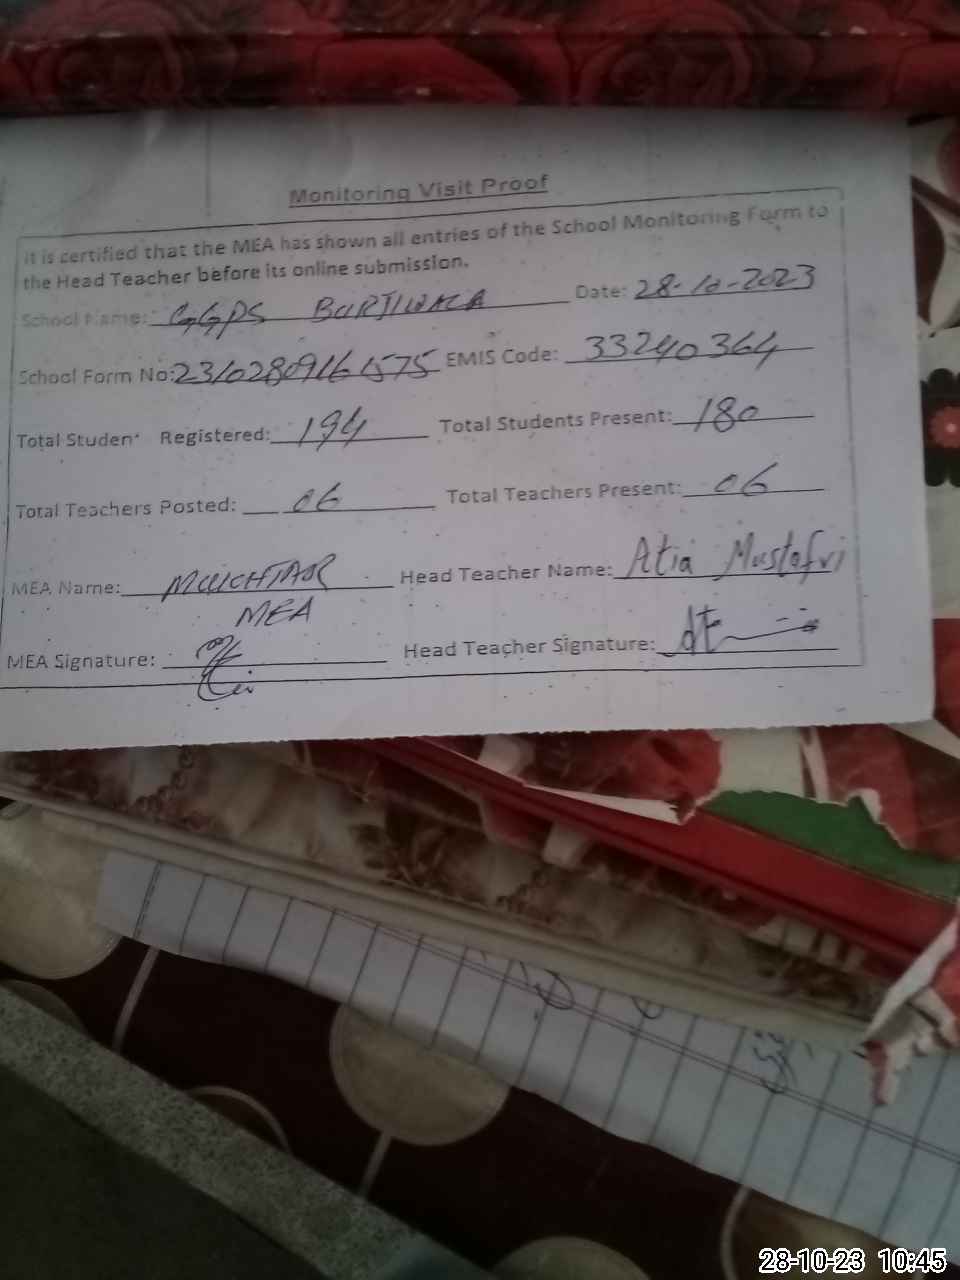 Monitoring Visit Proof
It is certified that the MEA has shown all entries of the School Monitoring Form to
the Head Teacher before its online submission.
School Name: GGPS BURJIWALA Date: 28-10-2023
School Form No: 23102809161575 EMIS Code: 33240364
Total Studen Registered: 194 Total Students Present: 180
Total Teachers Posted: 06 Total Teachers Present: 06
MEA Name: MUKHTAR Head Teacher Name: Atia
MEA
MEA Signature: Head Teacher Signature:
28-10-23 10:45